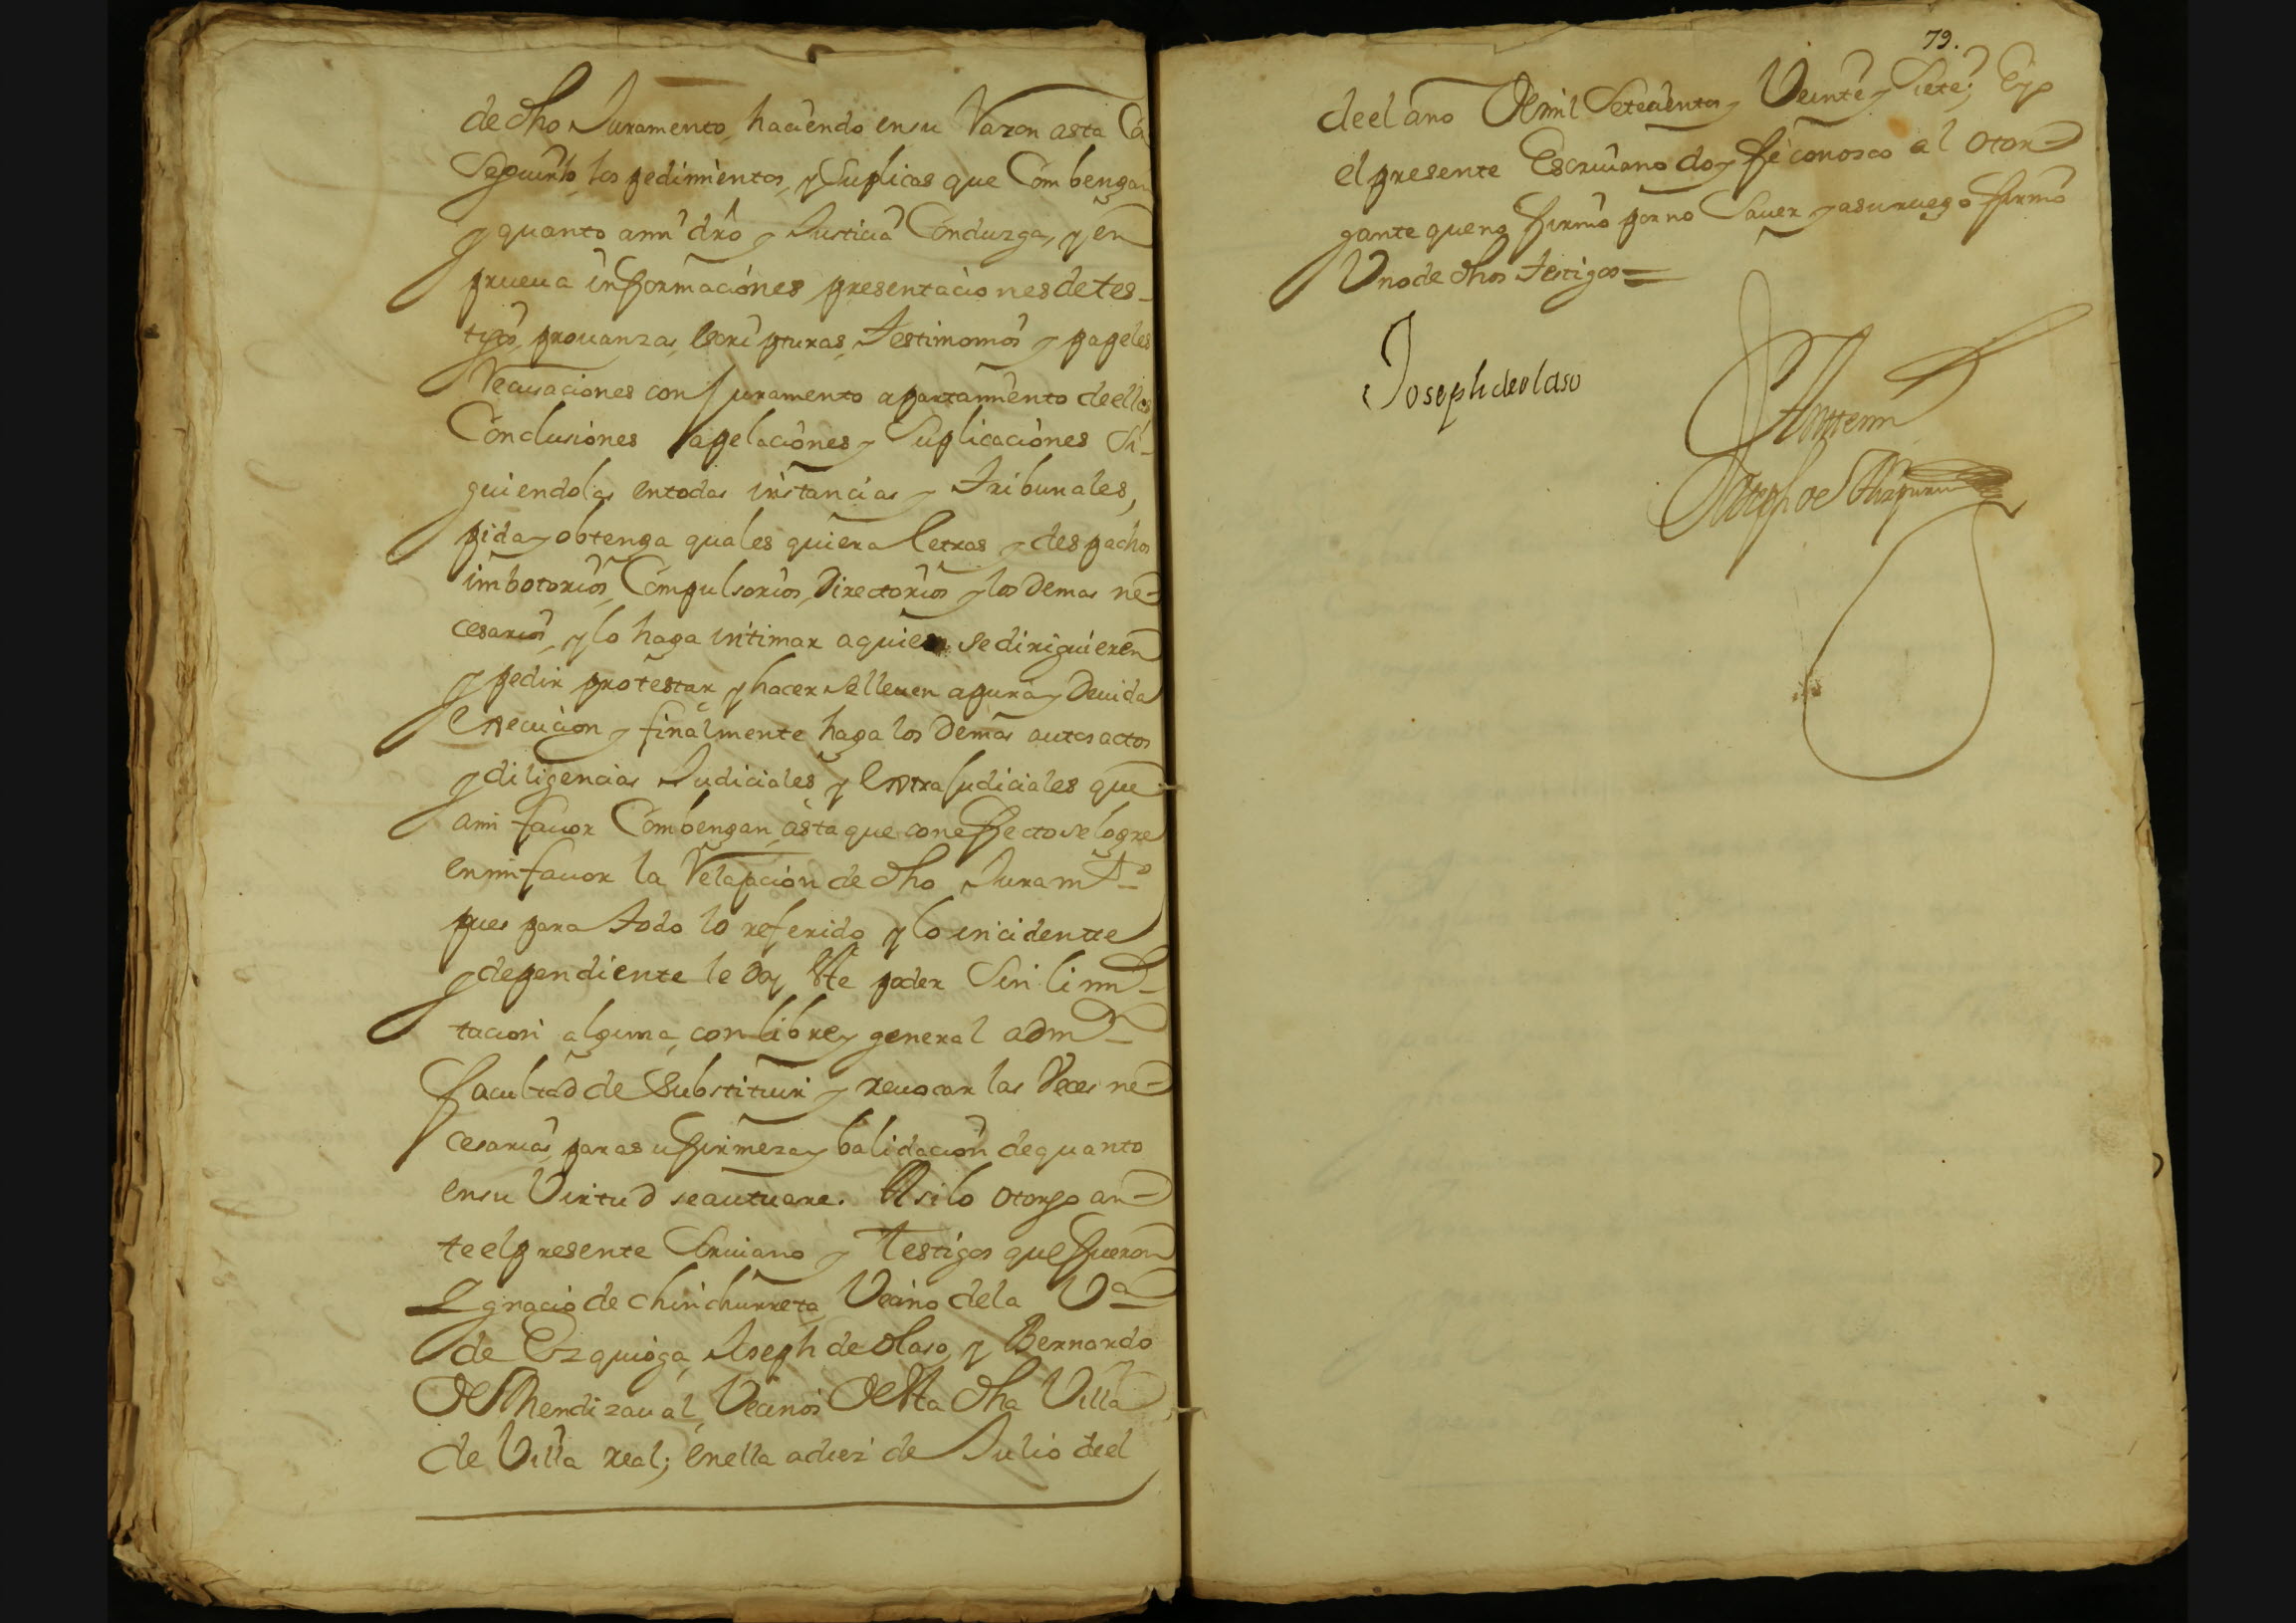 de dho Juramento, haciendo en su Razon asta Co
seguirlo, los pedimientos, y Suplicas que Combengan
y quanto a mi dro y Justicia Conduzga, y en
prueua informaciones presentaciones de tes-
tigos, prouanzas, escripturas, testimonios y papeles
Recusaciones con Juramento apartamiento de ellas
Conclusiones apelaciones y Suplicaciones Si-
guiendolas en todas instancias y tribunales,
pida y obtenga quales quiera letras y despachos
imbotorios, Compulsorios, Directorios y los Demas ne-
cesarios, y lo haga intimar a quien se dirigieren
y pedir protestar y hacer se lleuen a pura y Deuida
execucion y finalmente haga los Demas autos actos
y diligencias Judiciales y extraJudiciales que
a mi fauor Combengan, asta que con effecto se logre
en mi fauor la Relaxacion de dho Juramto
pues para todo lo referido y lo incidente
y dependiente le doy este poder Sin limi-
tacion alguna, con libre y general admn
facultad de Substituir y reuocar las Veces ne-
cesarias, para su firmeza y balidacion de quanto
en su Virtud se autuare. Asi lo otorgo an-
te el presente Escriuano y testigos que fueron
Ignacio de chinchurreta Vecino de la Va
de Ezquioga, Joseph de olaso, y Bernardo
de Mendizaual, Vecinos de esta dha Villa
de Villa real; en ella a diez de Julio de el
79.
de el año de mil Setecientos y Veinte y Siete; E yo
el presente Escriuano doy fe conosco al otor-
gante que no firmo por no Sauer y a su ruego firmo
Uno de dhos testigos =
Joseph de olaso
Ante mi
Joseph de